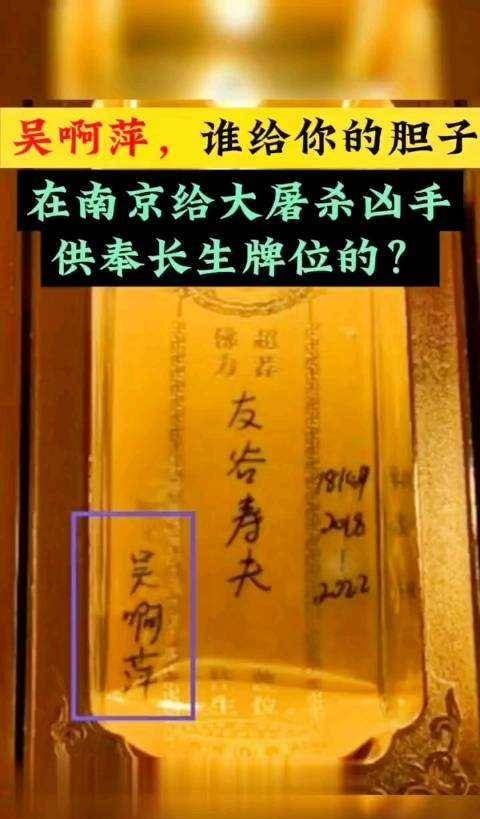 吴啊萍，谁给你的胆子
在南京给大屠杀凶手
供奉长生牌位的？
佛力
超荐
友谷寿夫
18149
2018
|
2022
吴啊萍